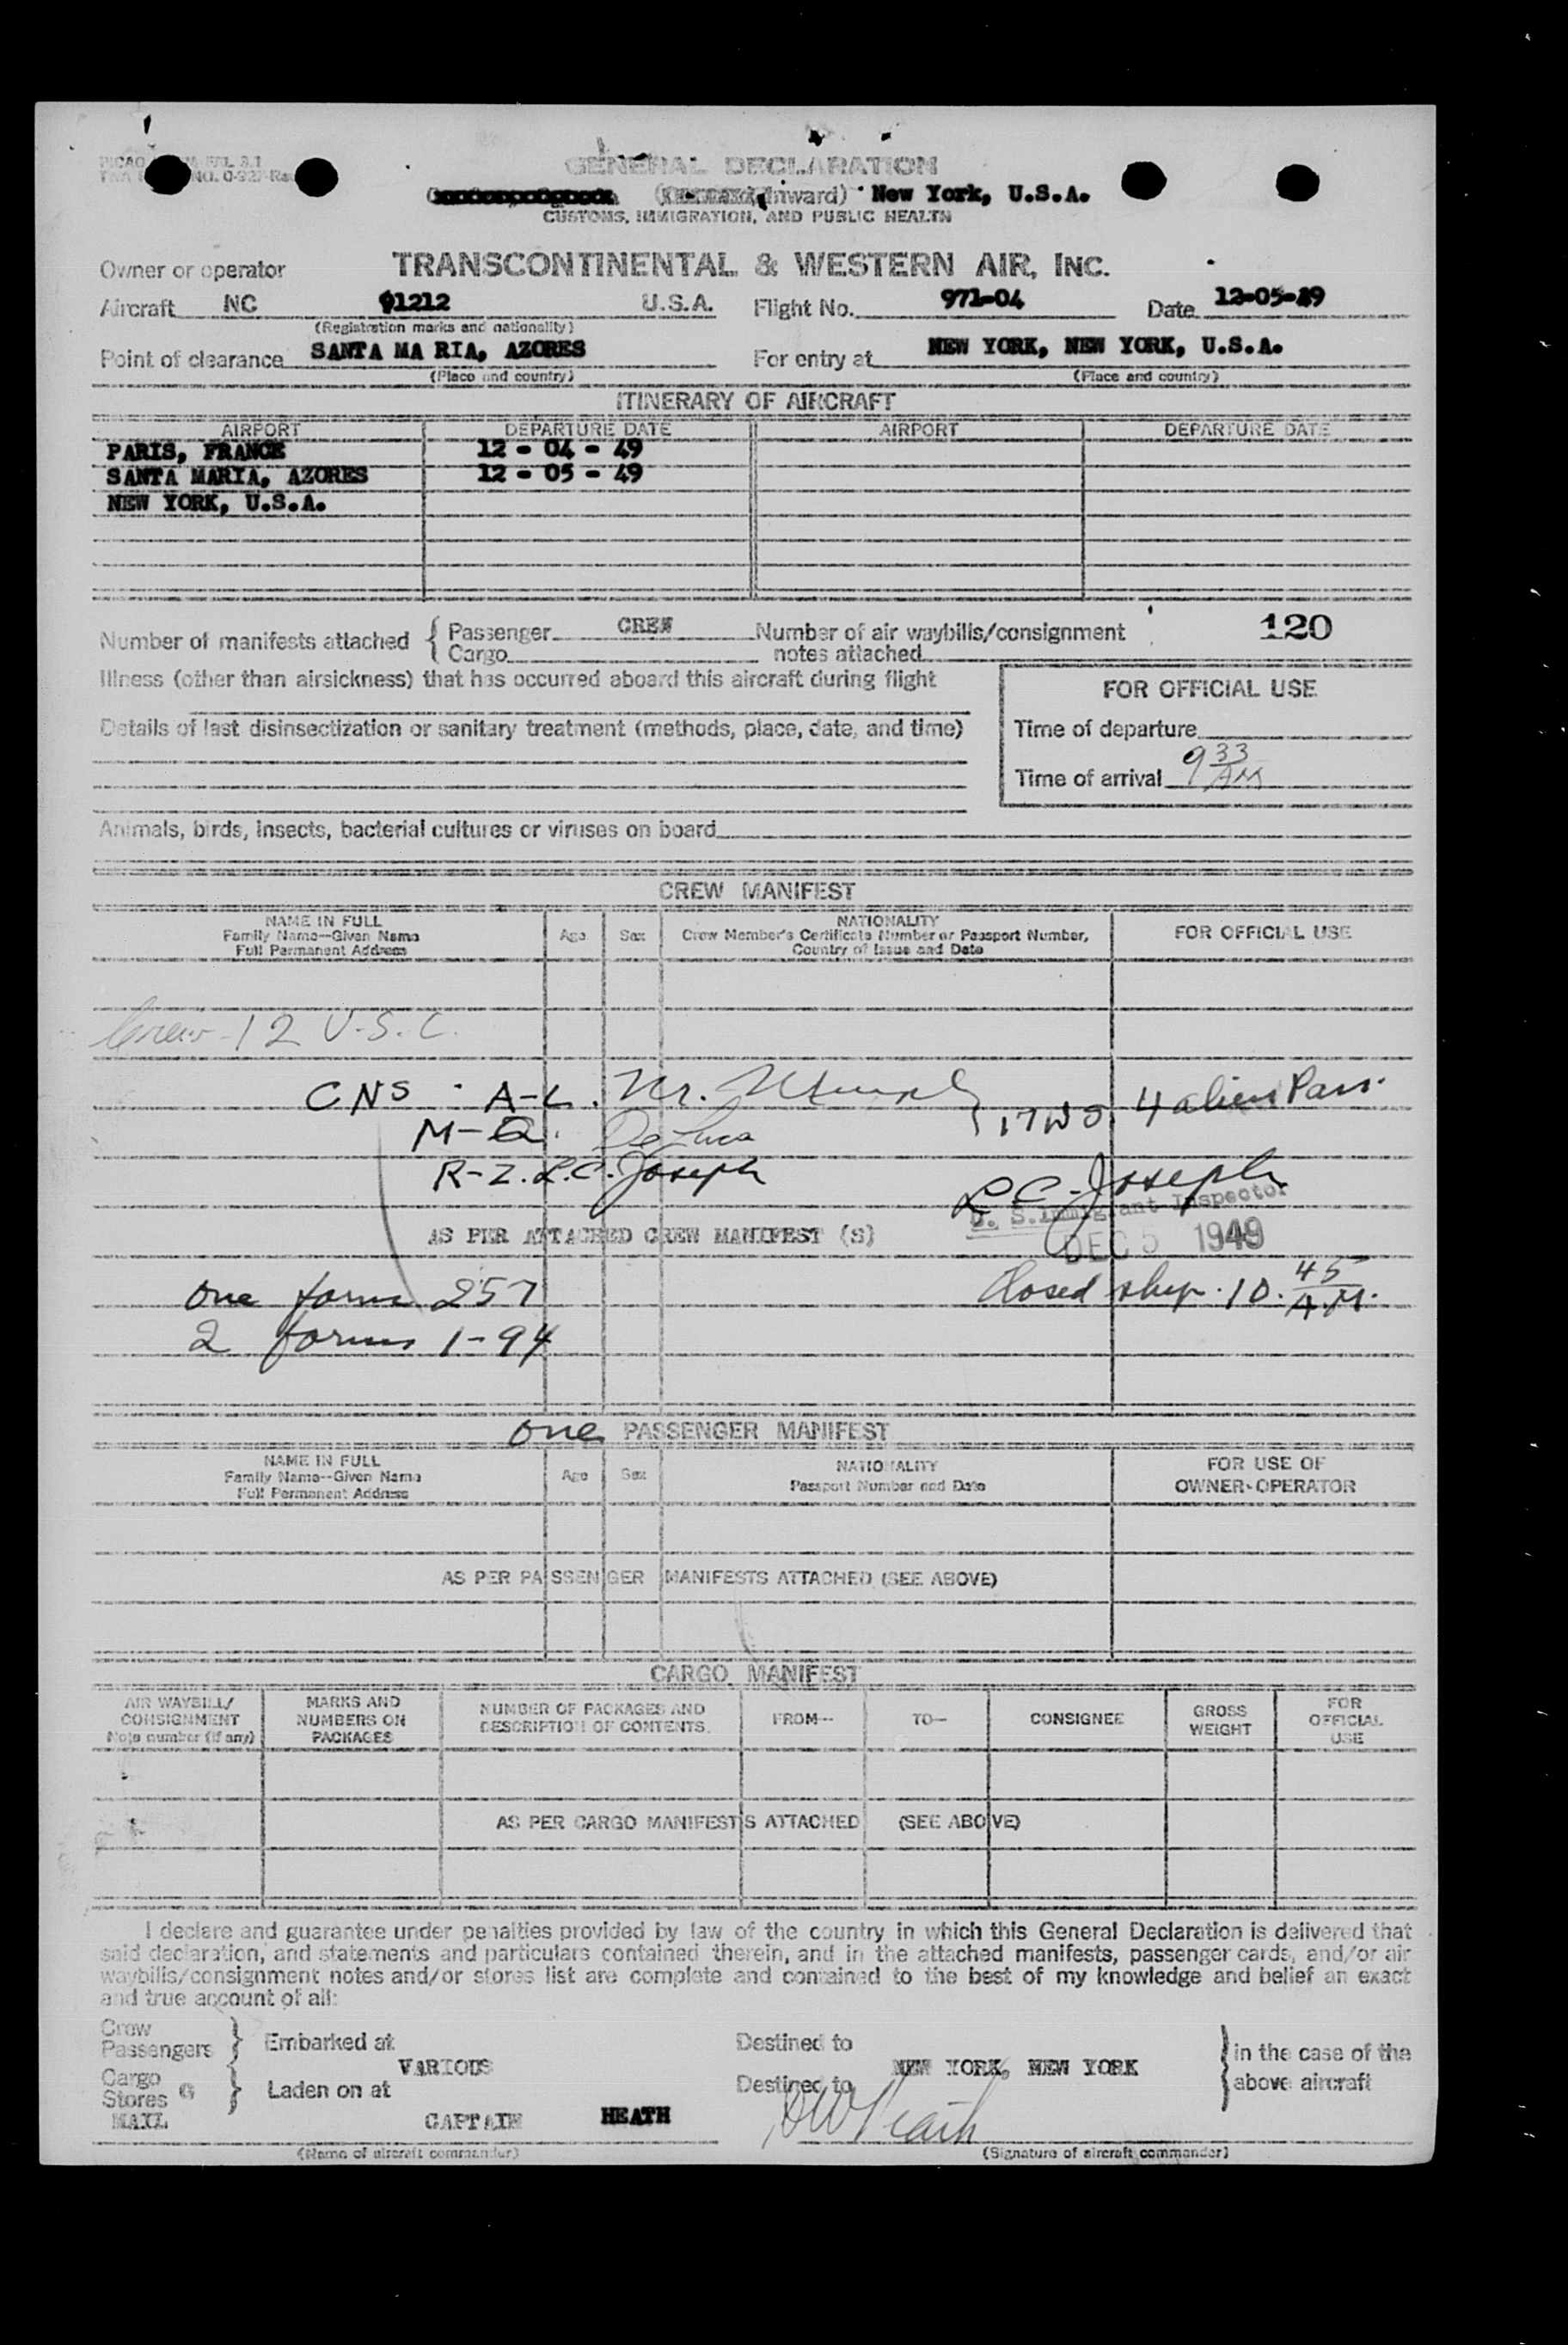 GENERAL DECLARATION
(Inward) New York, U.S.A.
CUSTOMS, IMMIGRATION, AND PUBLIC HEALTH
Owner or operator TRANSCONTINENTAL & WESTERN AIR, INC.
Aircraft NC 91212 U.S.A. Flight No. 971-04 Date 12-05-49
(Registration marks and nationality)
Point of clearance SANTA MA RIA, AZORES For entry at NEW YORK, NEW YORK, U.S.A.
(Place and country) (Place and country)
ITINERARY OF AIRCRAFT
AIRPORT DEPARTURE DATE AIRPORT DEPARTURE DATE
PARIS, FRANCE 12 - 04 - 49
SANTA MARIA, AZORES 12 - 05 - 49
NEW YORK, U.S.A.
Number of manifests attached { Passenger CREW Number of air waybills/consignment 120
Cargo notes attached
Illness (other than airsickness) that has occurred aboard this aircraft during flight
FOR OFFICIAL USE
Details of last disinsectization or sanitary treatment (methods, place, date, and time)
Time of departure
Time of arrival 9 33 AM
Animals, birds, insects, bacterial cultures or viruses on board
CREW MANIFEST
NAME IN FULL
Family Name--Given Name
Full Permanent Address
Age Sex
NATIONALITY
Crew Member's Certificate Number or Passport Number,
Country of Issue and Date
FOR OFFICIAL USE
Crew-12 U.S.C.
CNS A-L. Mr.
4 alien Pass.
M-Q. De Luca
R-Z. L.C. Joseph
L C. Joseph
U. S. Immigrant Inspector
AS PER ATTACHED CREW MANIFEST (S)
DEC 5 1949
one form 257
Closed ship. 10. 45 A.M.
2 forms 1-94
one PASSENGER MANIFEST
NAME IN FULL
Family Name--Given Name
Full Permanent Address
Age Sex
NATIONALITY
Passport Number and Date
FOR USE OF
OWNER-OPERATOR
AS PER PASSENGER MANIFESTS ATTACHED (SEE ABOVE)
CARGO MANIFEST
AIR WAYBILL/
CONSIGNMENT
Note number (if any)
MARKS AND
NUMBERS ON
PACKAGES
NUMBER OF PACKAGES AND
DESCRIPTION OF CONTENTS.
FROM--
TO--
CONSIGNEE
GROSS
WEIGHT
FOR
OFFICIAL
USE
AS PER CARGO MANIFESTS ATTACHED (SEE ABOVE)
I declare and guarantee under penalties provided by law of the country in which this General Declaration is delivered that
said declaration, and statements and particulars contained therein, and in the attached manifests, passenger cards, and/or air
waybills/consignment notes and/or stores list are complete and contained to the best of my knowledge and belief an exact
and true account of all:
Crew
Passengers } Embarked at Destined to
VARIOUS NEW YORK, NEW YORK
in the case of the
above aircraft
Cargo
Stores } Laden on at Destined to
MAIL CAPTAIN HEATH
(Name of aircraft commander) (Signature of aircraft commander)